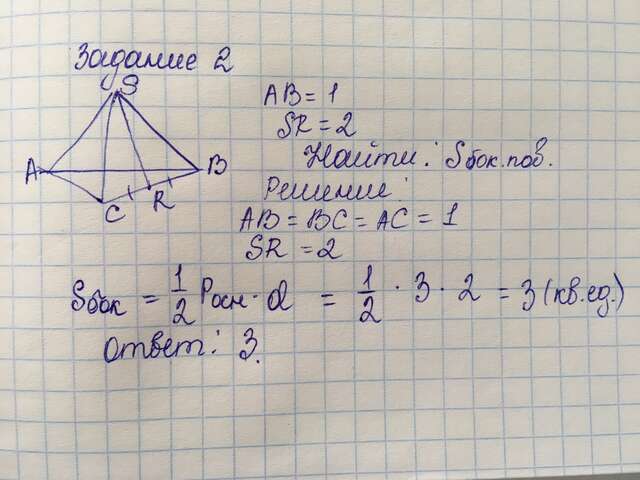 Задание 2
S
A
C
R
B
AB = 1
SR = 2
Найти: Sбок.пов.
Решение
AB = BC = AC = 1
SR = 2
Sбок = 1/2 Pосн · d = 1/2 · 3 · 2 = 3 (кв.ед.)
Ответ: 3.